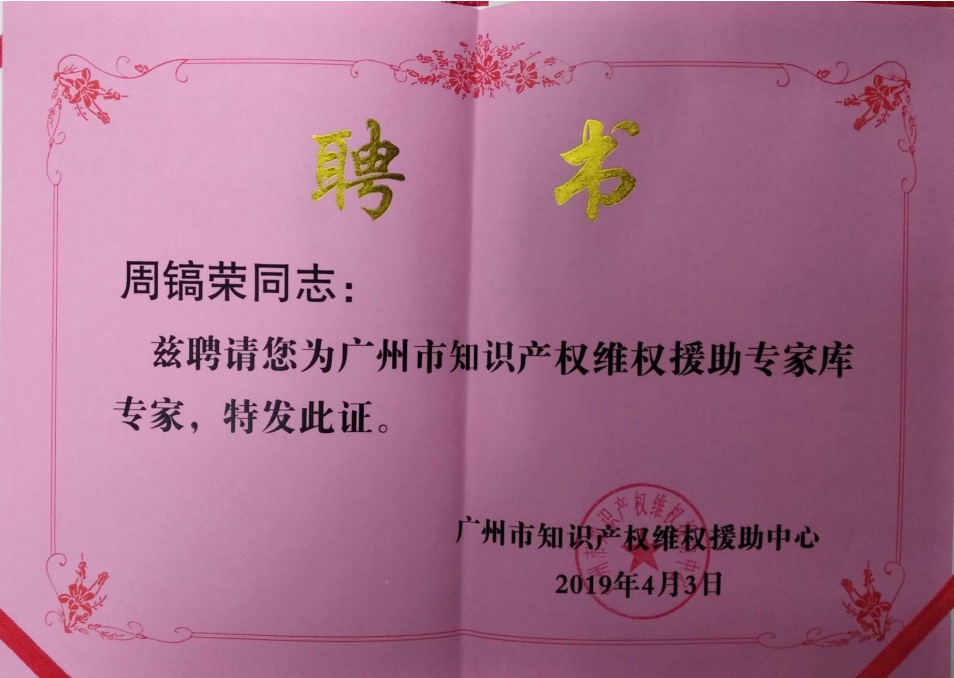 聘 书
周镐荣同志：
兹聘请您为广州市知识产权维权援助专家库
专家，特发此证。
广州市知识产权维权援助中心
2019年4月3日